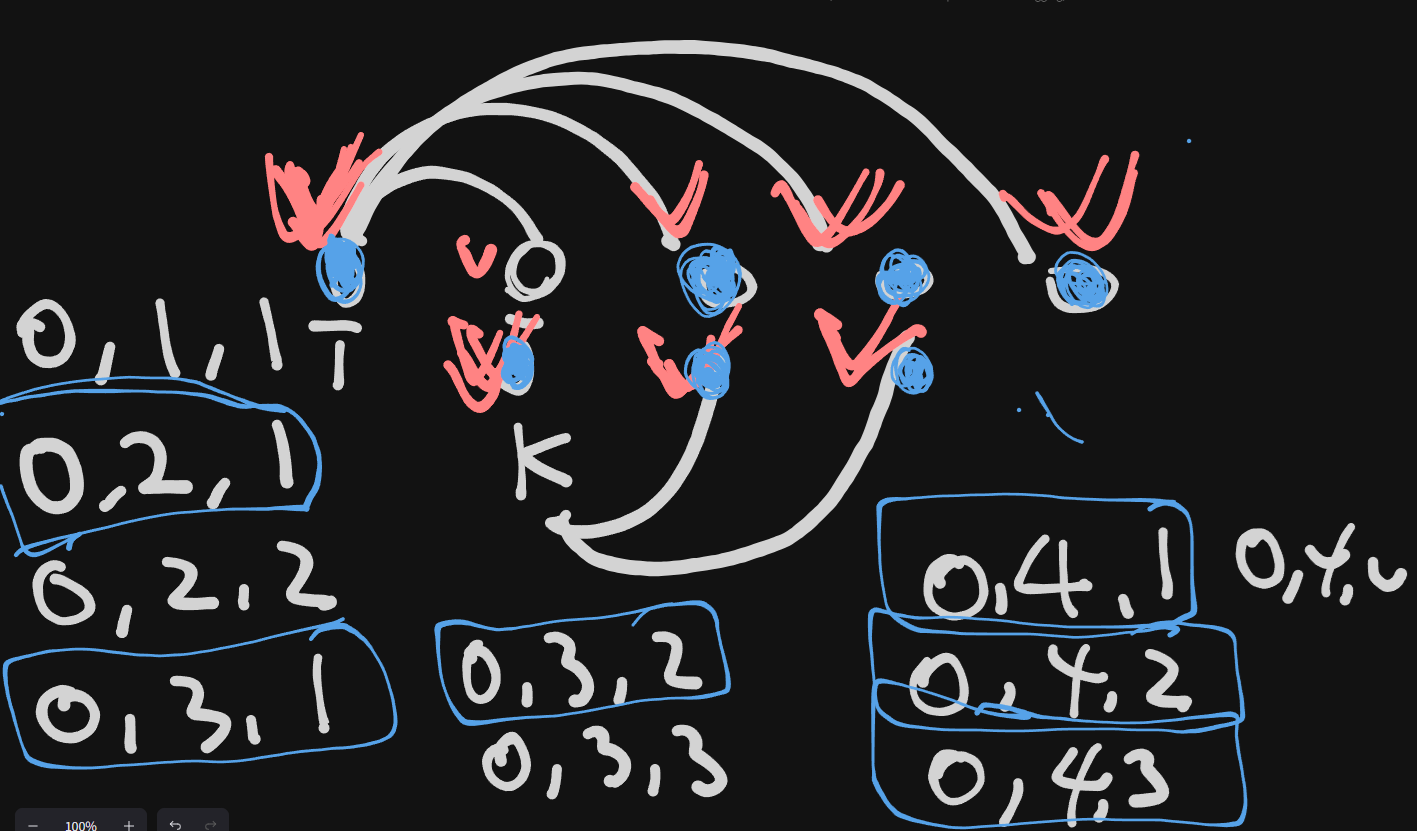 0, 1, 1
I
0, 2, 1
K
0, 2, 2
0, 3, 1
0, 3, 2
0, 3, 3
0, 4, 1
0, 4, 2
0, 4, 3
100%